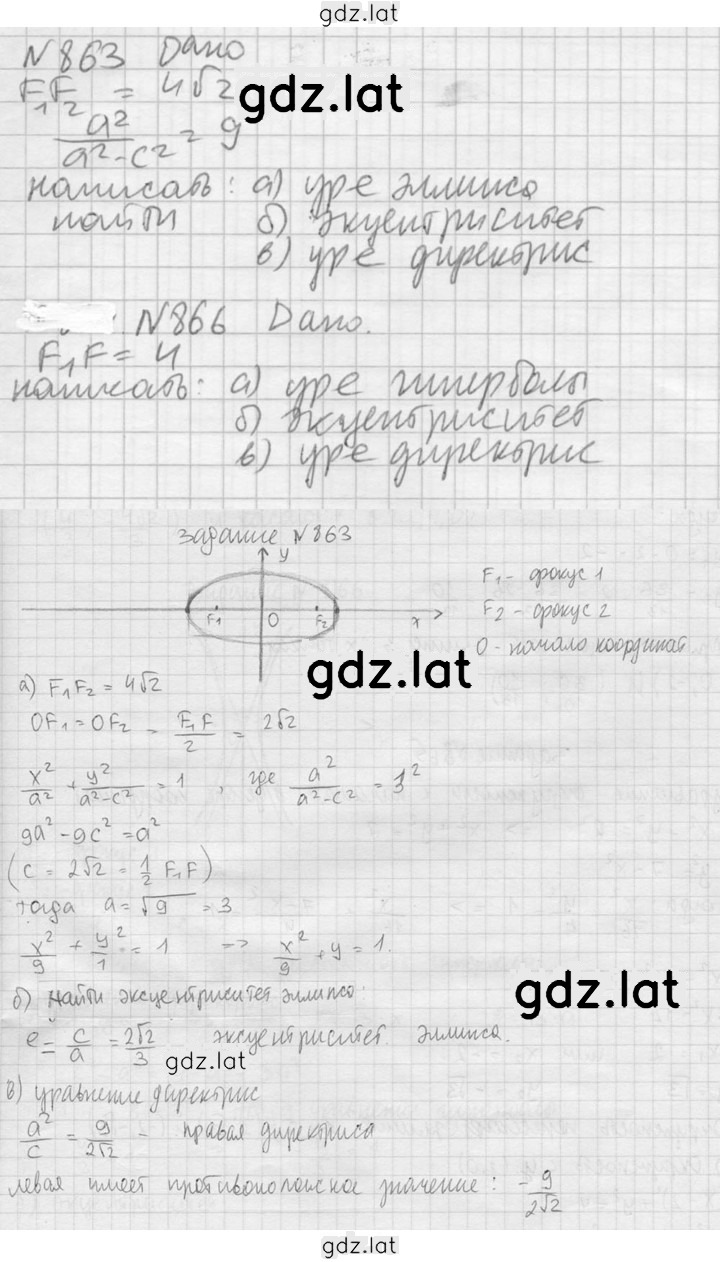 gdz.lat
N863 Дано
F₁F₂ = 4√2
gdz.lat
a²/(a²-c²) = 9
написать: а) уре эллипса
найти б) экцентриситет
в) уре директрис
N866 Дано.
F₁F = 4
написать: а) уре гиперболы
б) экцентриситет
в) уре директрис
задание N863
y
F₁ O F₂ x
F₁ - фокус 1
F₂ - фокус 2
O - начало координат
gdz.lat
а) F₁F₂ = 4√2
OF₁ = OF₂ = F₁F/2 = 2√2
x²/a² + y²/(a²-c²) = 1 , где a²/(a²-c²) = 3²
9a² - 9c² = a²
(c = 2√2 = 1/2 F₁F)
тогда a = √9 = 3
x²/9 + y²/1 = 1 => x²/9 + y = 1.
б) найти эксцентриситет эллипса:
gdz.lat
e = c/a = 2√2/3 эксцентриситет эллипса.
gdz.lat
в) уравнение директрис
a²/c = 9/2√2 - правая директриса
левая имеет противоположное значение: -9/2√2
gdz.lat